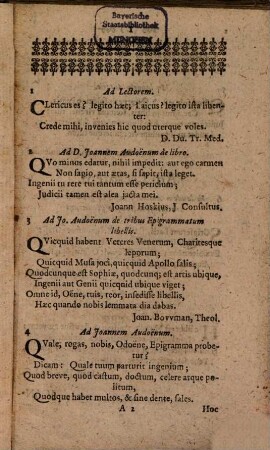 Bayerische
Staatsbibliothek
MÜNCHEN
1 Ad Lectorem.
Clericus es? legito hæc; Laicus? legito ista liben-
ter:
Crede mihi, invenies hic quod uterque voles.
D. Du. Tr. Med.
2 Ad D. Joannem Audoënum de libro.
Quo minus edatur, nihil impedit: aut ego carmen
Non sapio, aut ætas, si sapit, ista leget.
Ingenii tu rere tui tantum esse periclum;
Judicii tamen est alea jacta mei.
Joann Hoskius, J. Consultus.
3 Ad Jo. Audoënum de tribus Epigrammatum
libellis.
Quicquid habent Veteres Venerum, Charitesque
leporum;
Quicquid Musa joci, quicquid Apollo salis;
Quodcunque est Sophiæ, quodcunq; est artis ubique,
Ingenii aut Genii quicquid ubique viget;
Omne id, Oëne, tuis, reor, insedisse libellis,
Hæc quando nobis lemmata dia dabas.
Joan. Bovvman, Theol.
4 Ad Joannem Audoënum.
Quale, rogas, nobis, Odoëne, Epigramma probe-
tur?
Dicam: Quale tuum parturit ingenium;
Quod breve, quod castum, doctum, celere atque po-
litum,
Quodque habet multos, & sine dente, sales.
A 2 Hoc